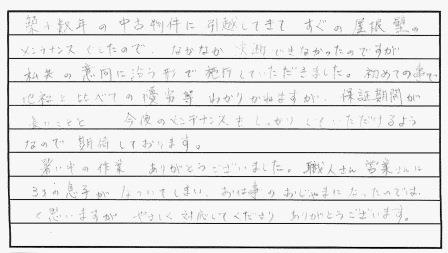 築十数年の中古物件に引越してきてすぐの屋根壁の
メンテナンスでしたので、なかなか決断できなかったのですが
私共の意向に沿う形で施行していただきました。初めての事で
他社と比べての優劣等わかりかねますが、保証期間が
長いことと 今後のメンテナンスもしっかりしていただけるよう
なので期待しております。
暑い中の作業 ありがとうございました。職人さん営業さんに
3才の息子がなついてしまい、お仕事のおじゃまになったのでは
と思いますが やさしく対応してくださり ありがとうございます。